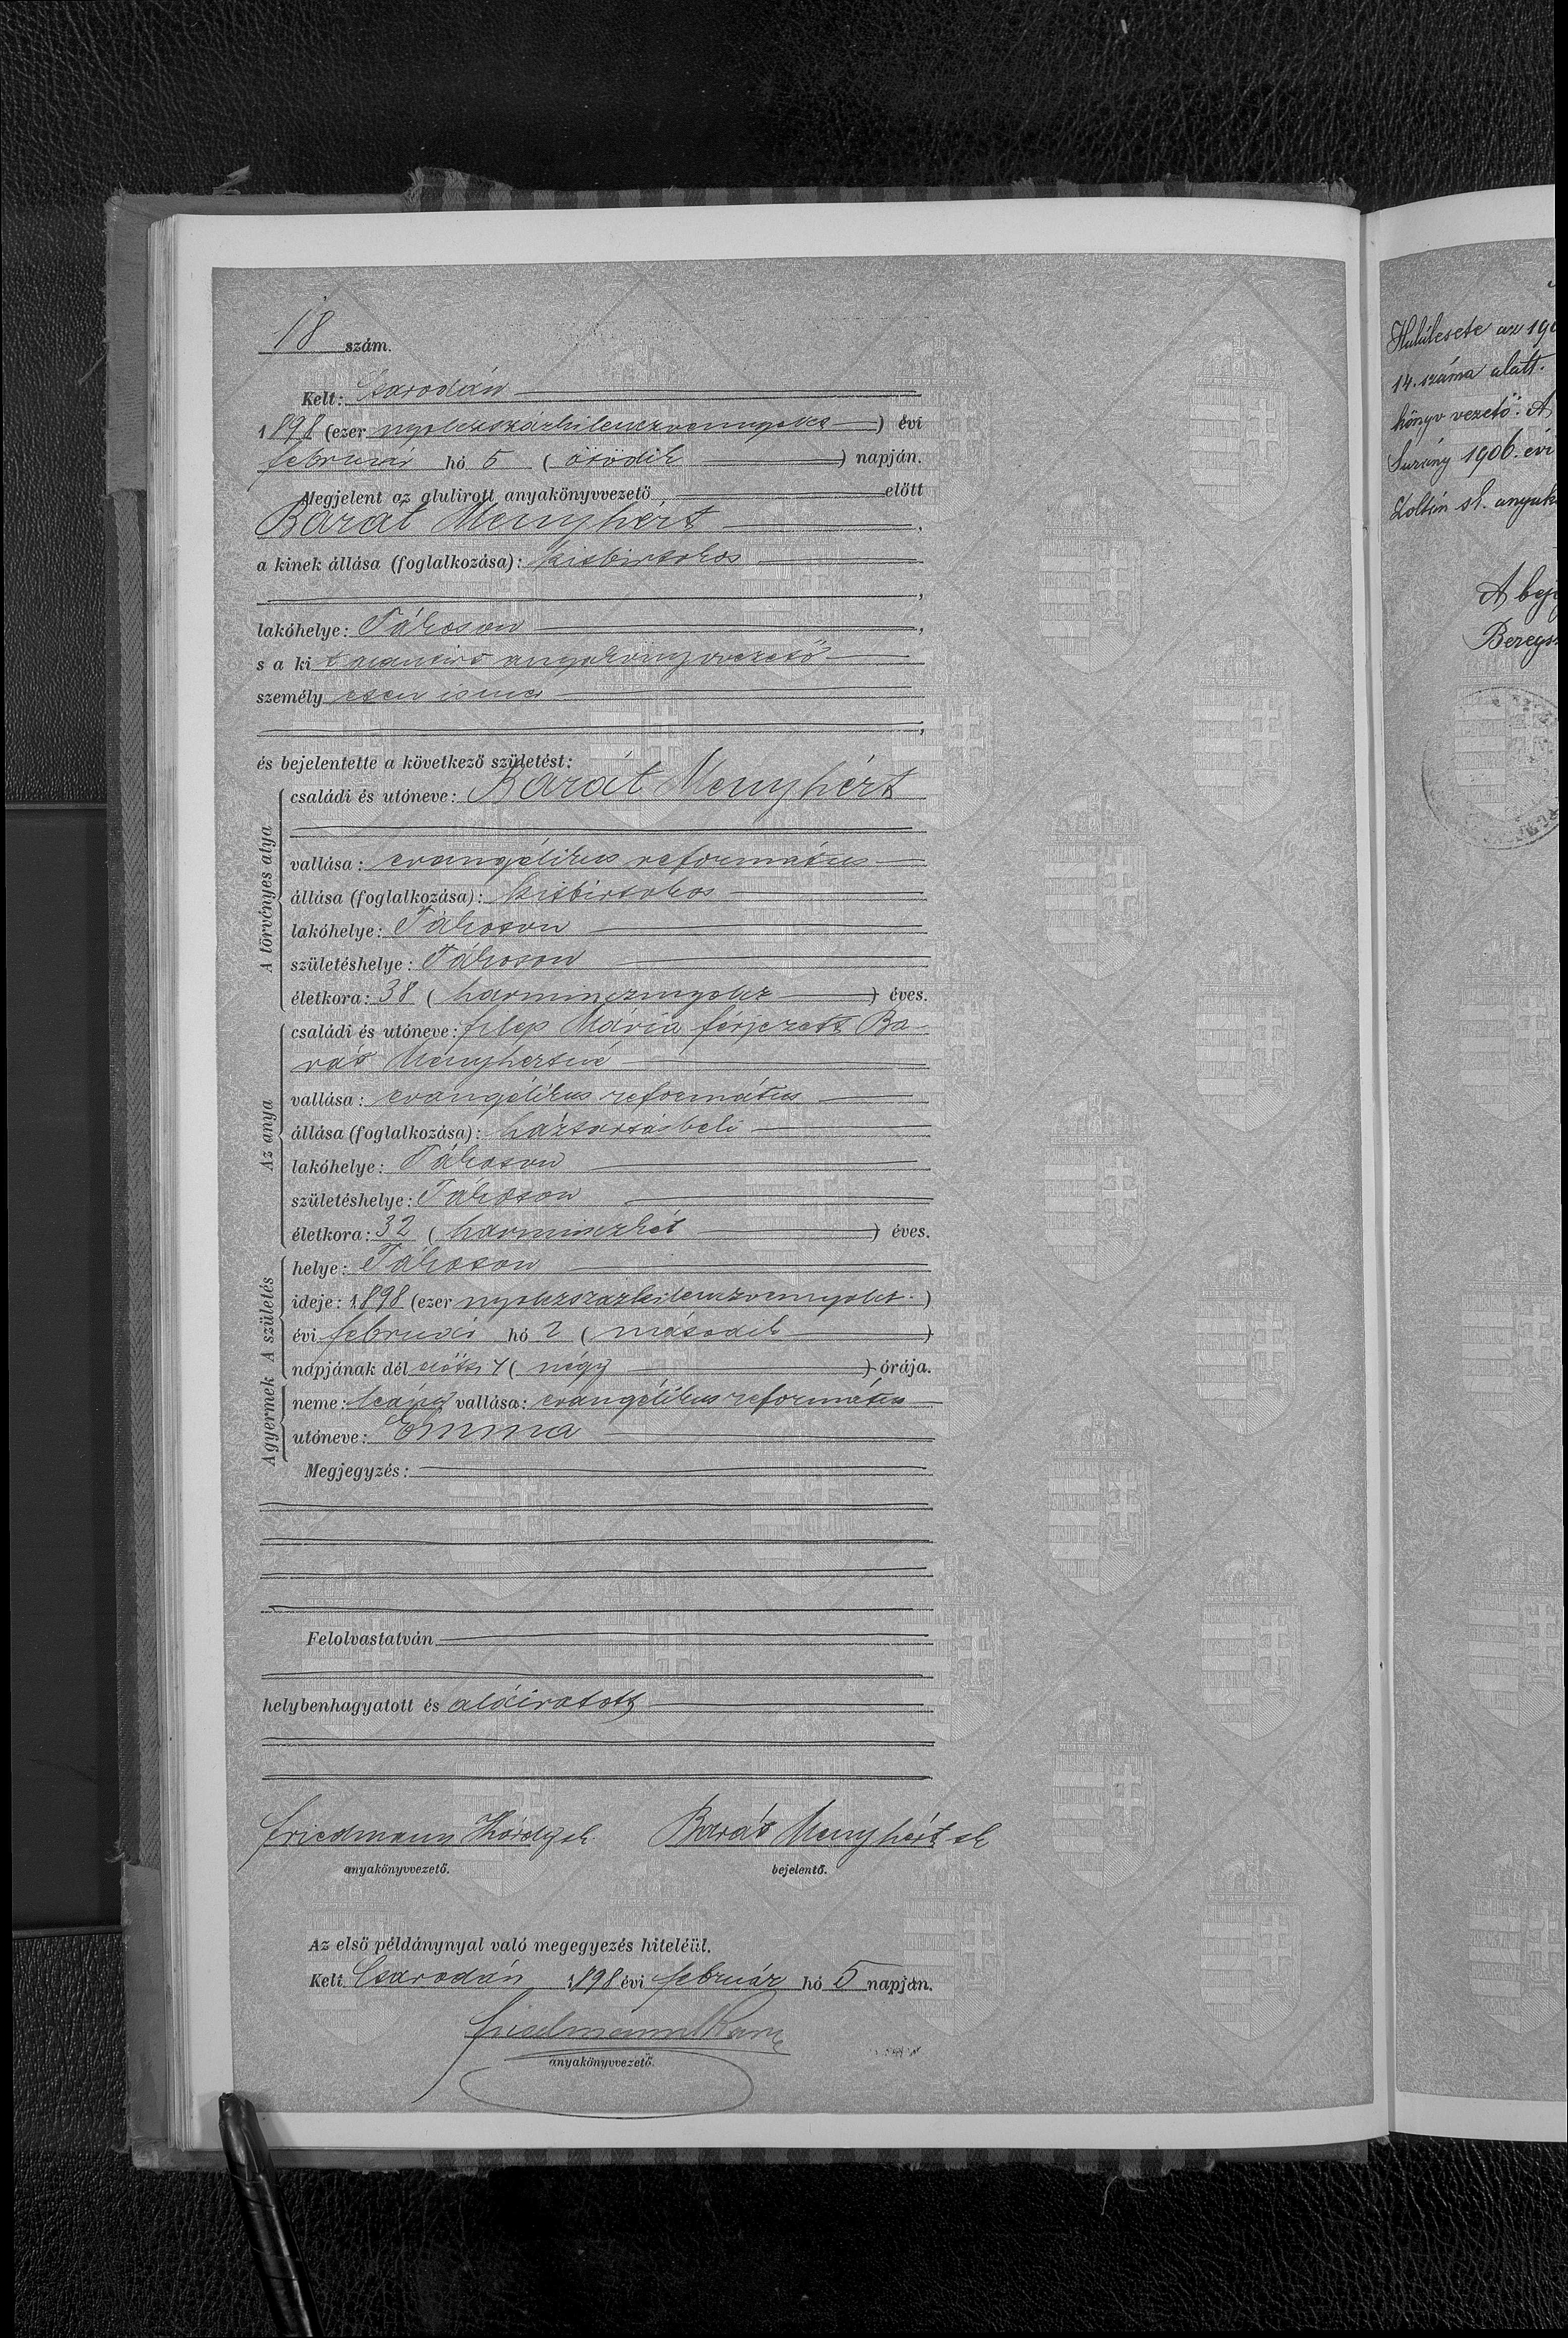 18 szám.
Kelt: Csarodán
1898 (ezer nyolczszázkilenczvennyolcz) évi
február hó 5 (ötödik) napján.
Megjelent az alulirott anyakönyvvezető előtt
Barát Menyhért,
a kinek állása (foglalkozása): kisbirtokos
,
lakóhelye: Tákoson,
s a ki t alantiró anyakönyvvezető
személyesen ismer
;
és bejelentette a következő születést:
A törvényes atya
családi és utóneve: Barát Menyhért
vallása: evangélikus református
állása (foglalkozása): kisbirtokos
lakóhelye: Tákoson
születéshelye: Tákoson
életkora: 38 (harmincznyolcz) éves.
Az anya
családi és utóneve: filep Mária férjezett Ba-
rát Menyhertné
vallása: evangélikus református
állása (foglalkozása): háztartásbeli
lakóhelye: Tákoson
születéshelye: Tákoson
életkora: 32 (harminczkét) éves.
A születés
helye: Tákoson
ideje: 1898 (ezer nyolczszázkilenczvennyolcz)
évi február hó 2 (második)
napjának dél előtti 4 (négy) órája.
A gyermek
neme: leány vallása: evangélikus református
utóneve: Emma
Megjegyzés:
Felolvastatván
helybenhagyatott és aláiratott
Friedmann sk Barát Menyhért sk
anyakönyvvezető. bejelentő.
Az első példánynyal való megegyezés hiteléül.
Kelt Csarodán 1898 évi február hó 5 napján.
Friedmann
anyakönyvvezető.
Halálesete az 190
14. száma alatt.
könyvvezető. A
Surány 1906. évi
Zoltán sk. anyak
A bej
Beregs